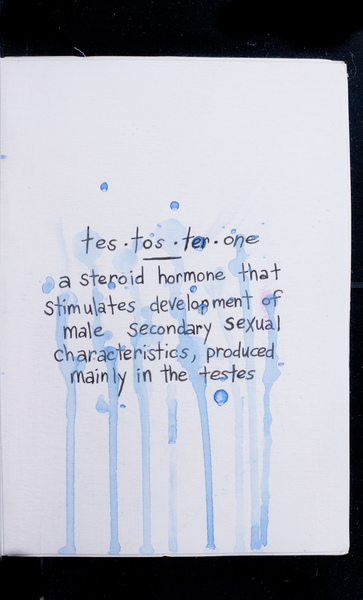 tes·tos·ter·one
a steroid hormone that
stimulates development of
male secondary sexual
characteristics, produced
mainly in the testes